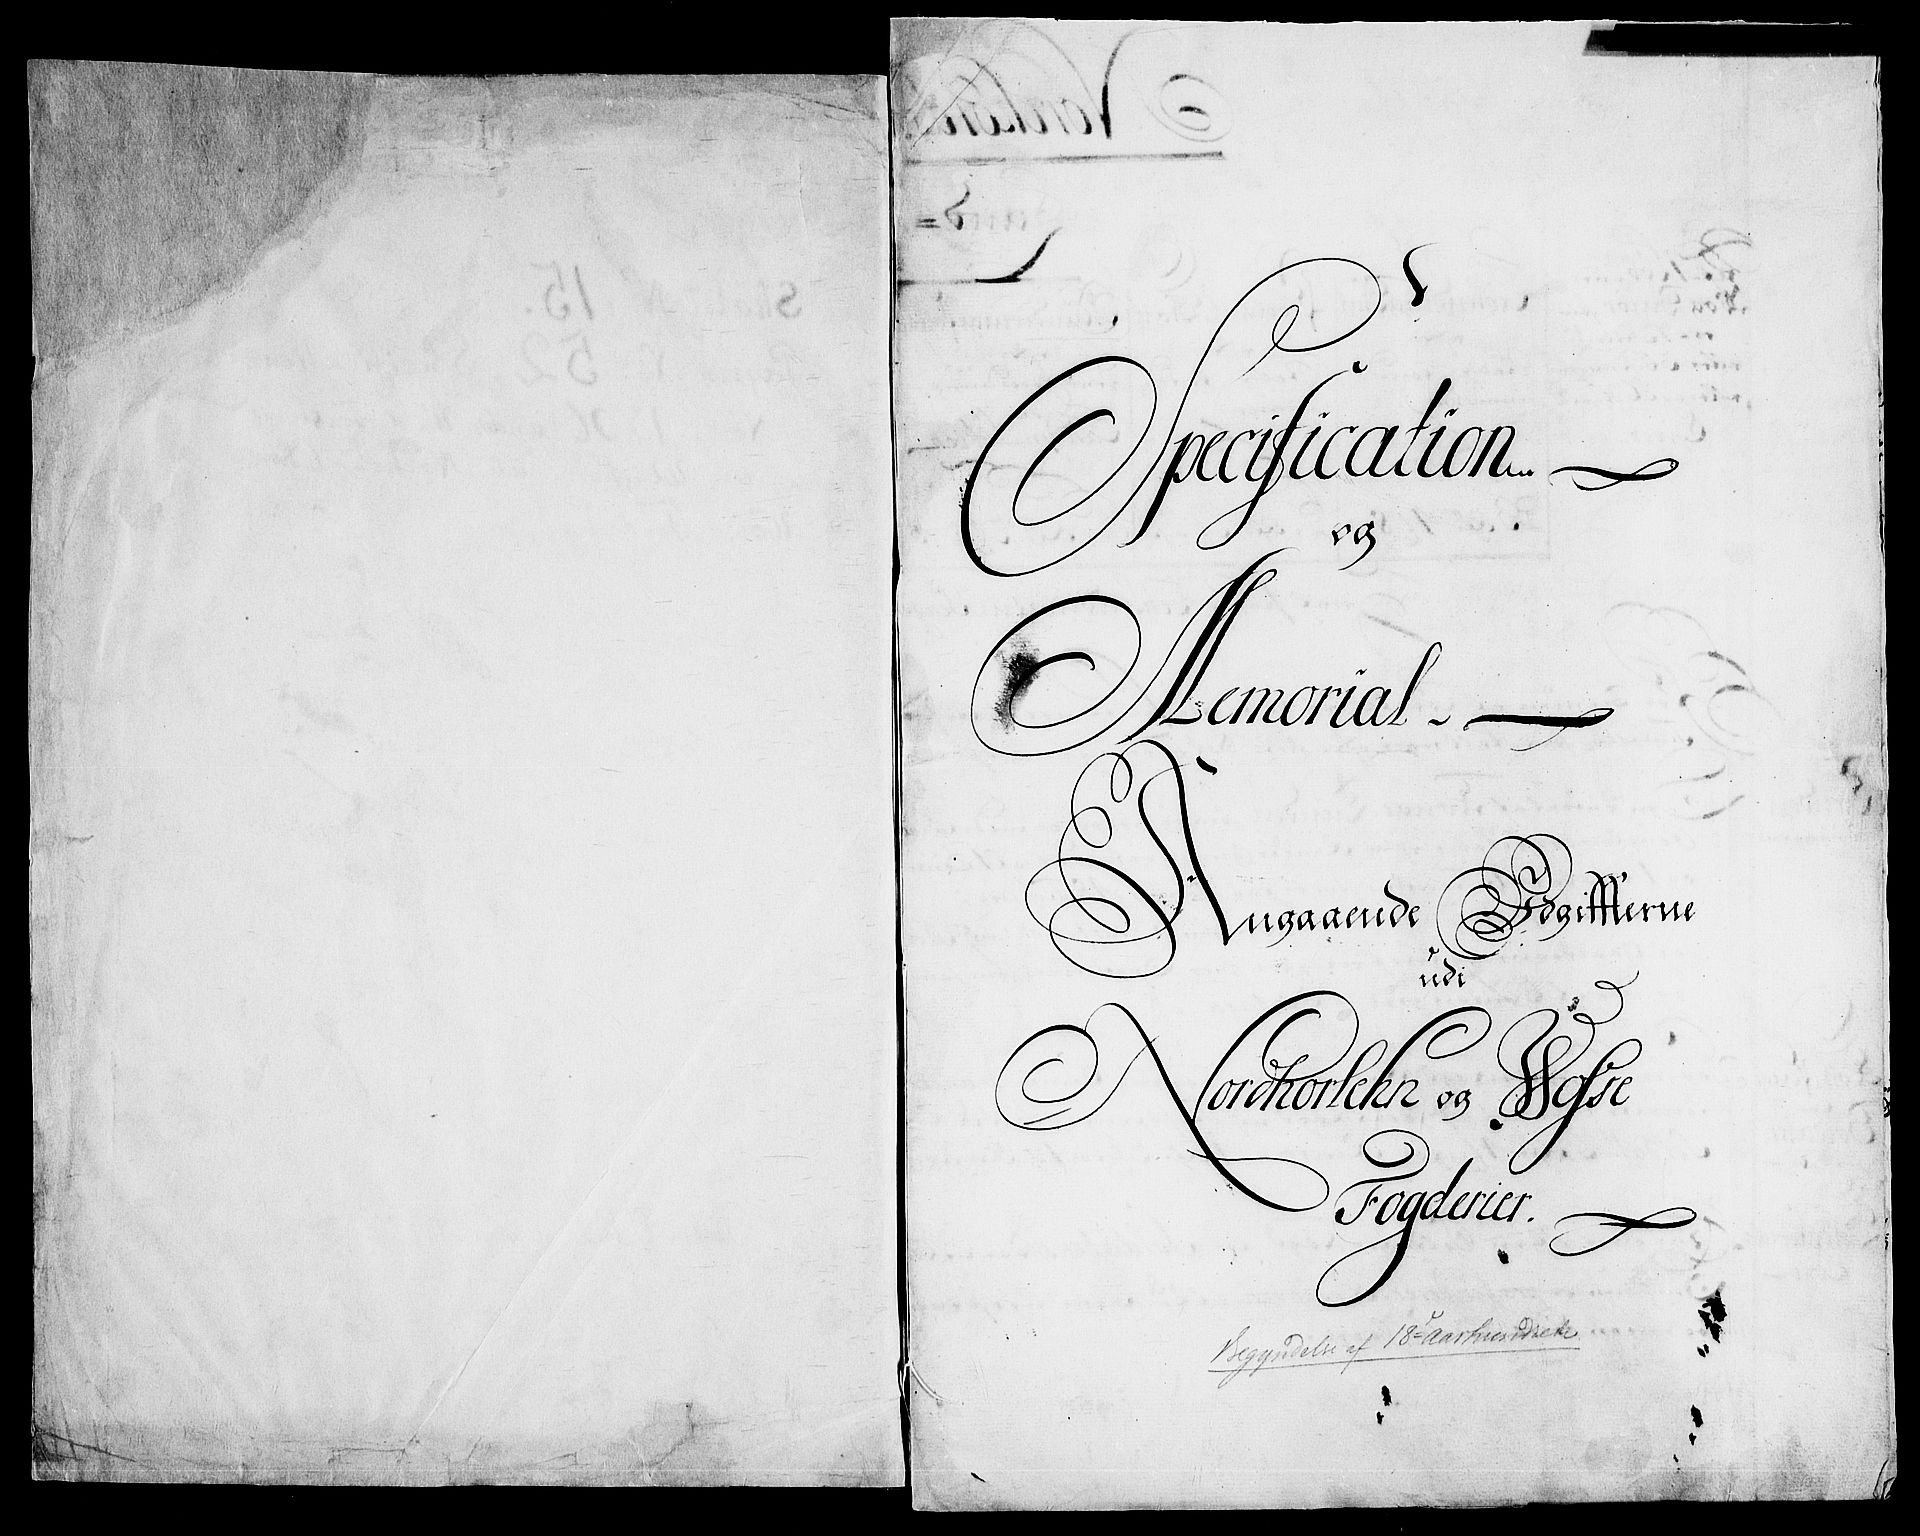 Specification
og
Memorial
Angaaende Udgiffterne
udi
Nordhorlehn og Wosse
Fogderier.
Begyndelse af 18de Aarhundrede